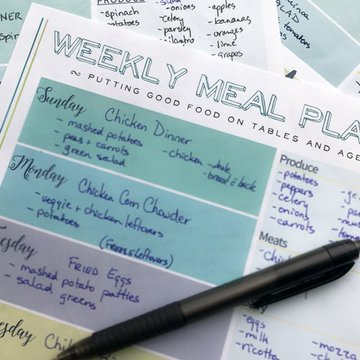 NER
PRODUCE
spinach
potatoes
- onions
- celery
- parsley
- cilantro
- apples
- bananas
- oranges
- lime
- grapes
tomatoes
WEEKLY MEAL PLA
PUTTING GOOD FOOD ON TABLES AND AGE
Sunday
Chicken Dinner
- mashed potatoes
- peas + carrots
- green salad
- chicken - whole
- breast & back
Monday
Chicken Corn Chowder
- veggie + chicken leftovers
- potatoes
(Freeze leftovers)
uesday
FRIED EGGS
- mashed potato patties
- salad greens
sday
Chi
Produce
- potatoes
- peppers
- celery
- onions
- carrots
Meats
- chick
- eggs
- milk
- ricotta
- mozza